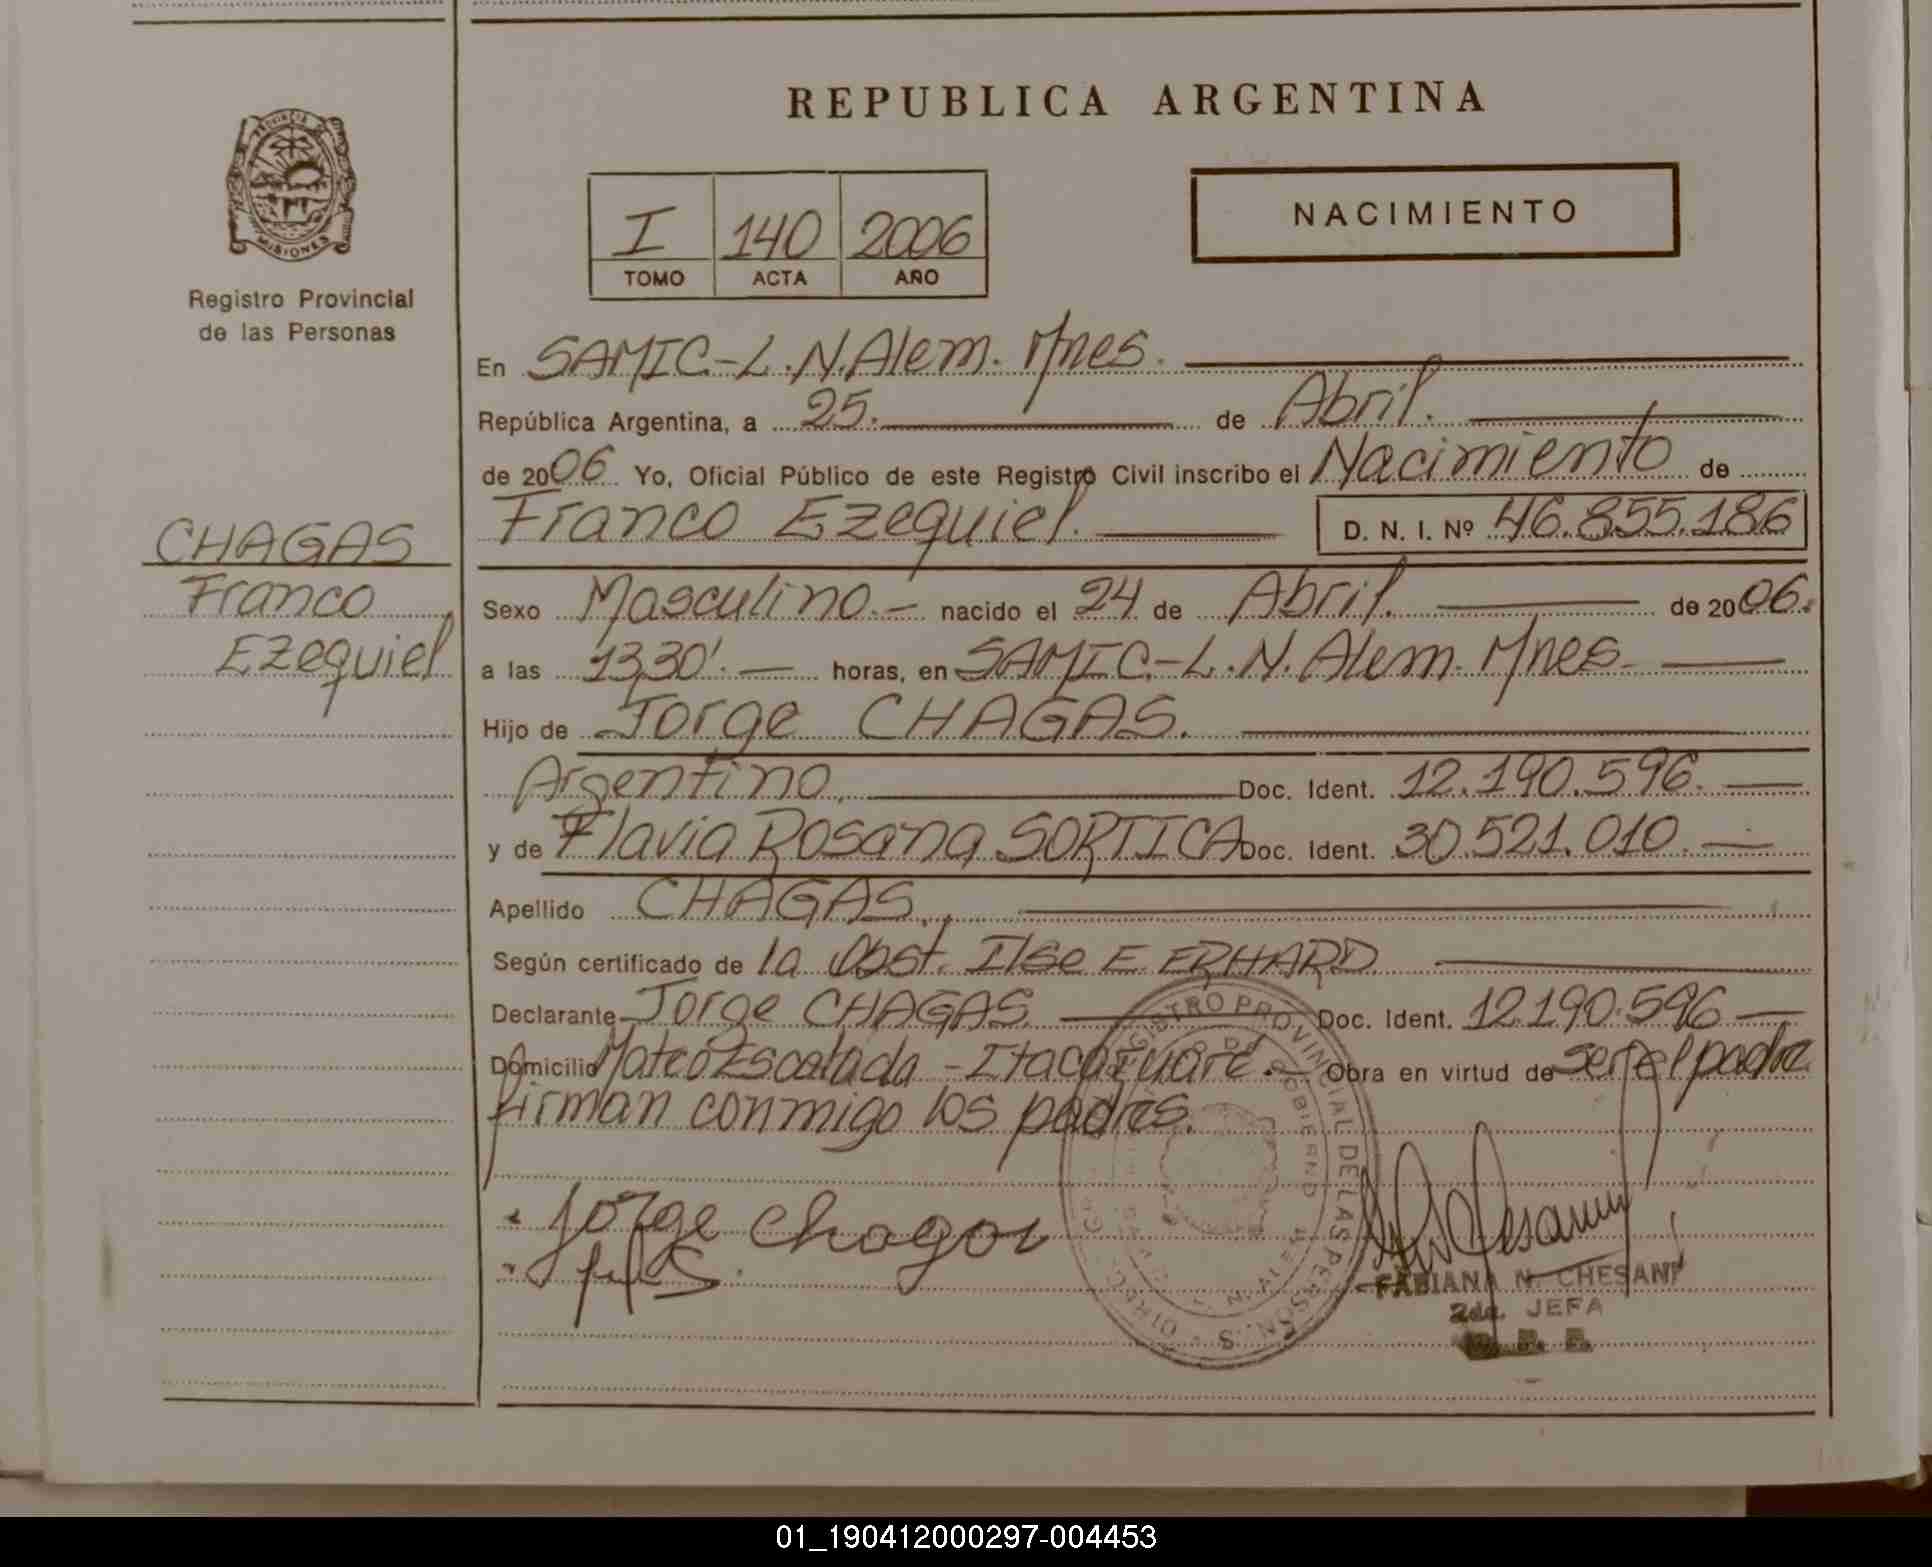 REPUBLICA ARGENTINA
PROVINCIA DE
MISIONES
Registro Provincial
de las Personas
I 140 2006
TOMO ACTA AÑO
NACIMIENTO
En SAMIC-L.N.Alem. Mnes.
República Argentina, a 25. de Abril.
de 2006 Yo, Oficial Público de este Registro Civil inscribo el Nacimiento de
Franco Ezequiel. D. N. I. Nº 46.855.186
CHAGAS
Franco
Ezequiel
Sexo Masculino.- nacido el 24 de Abril. de 2006.
a las 13,30'.- horas, en SAMIC.-L.N.Alem. Mnes.
Hijo de Jorge CHAGAS.
Argentino. Doc. Ident. 12.190.596.
y de Flavia Rosana SORTICA Doc. Ident. 30.521.010.
Apellido CHAGAS.
Según certificado de la Obst. Ilse E. ERHARD
Declarante Jorge CHAGAS. Doc. Ident. 12.190.596
Domicilio Mateo Escalada - Itacaruaré.- Obra en virtud de ser el padre
firman conmigo los padres.
Jorge Chagas
REGISTRO PROVINCIAL DE LAS PERSONAS
FABIANA N. CHESANI
2da. JEFA
01_190412000297-004453